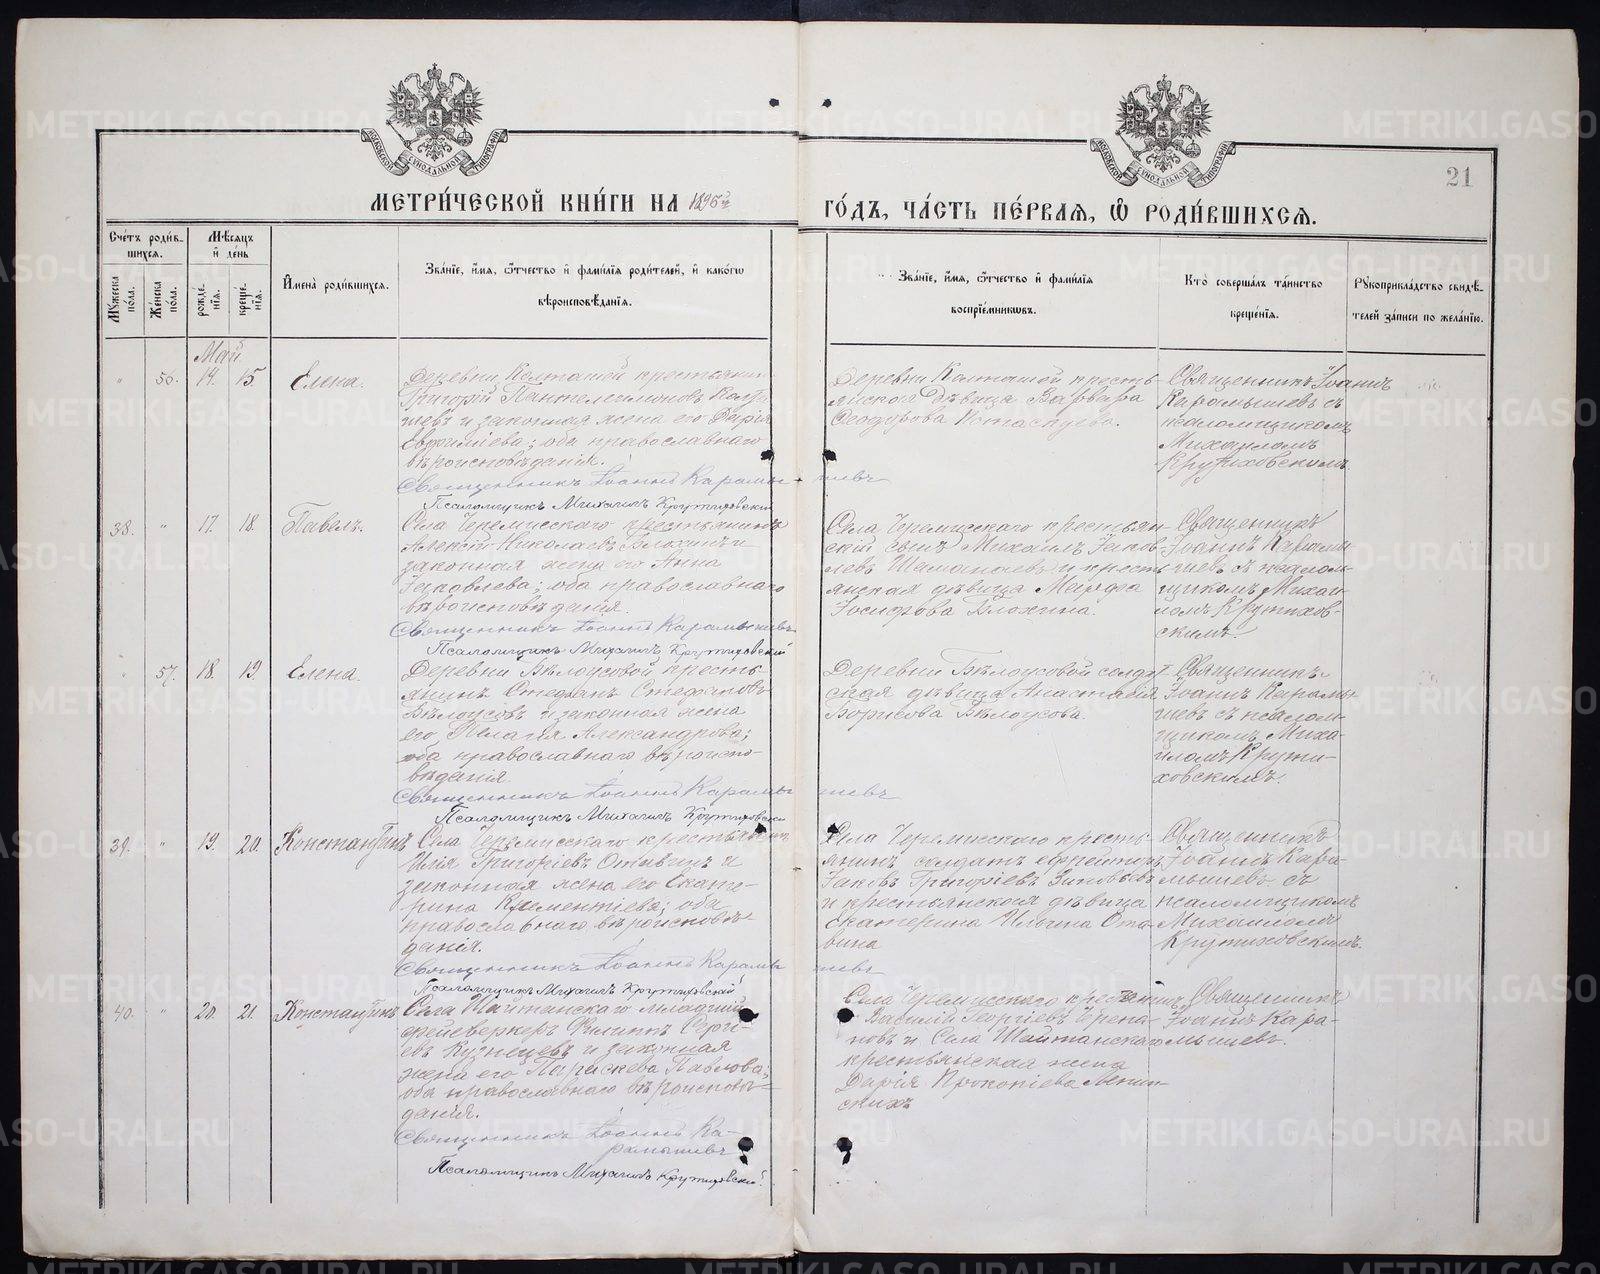 МЕТРИ́ЧЕСКОЙ КНИ́ГИ НА 1895й
ГО́ДЪ, ЧА́СТЬ ПЕ́РВАѦ, Ѽ РОДИ́ВШИХСѦ.
21
Сче́тъ роди́в-
шихся.
Мѣ́сяцъ
и де́нь
Му́жеска
по́ла.
Же́нска
по́ла.
рожде́-
нїя.
креще́-
нїя.
Имена̀ роди́вшихся.
Зва́нїе, и́мя, ѻ́тчество и фами́лїя роди́телей, и како́гѡ
вѣроисповѣ́данїя.
Зва́нїе, и́мя, ѻ́тчество и фами́лїя
воспрїе́мникѡвъ.
Кто̀ соверша́лъ та́инство
креще́нїя.
Рꙋкоприкла́дство свидѣ́-
телей за́писи по жела́нїю.
Май
" 56. 14. 15. Елена.
Деревни Колташой крестьянинъ
Григорій Пантелеимоновъ Колта-
шевъ и законная жена его Дарія
Евфиміева; оба православнаго
вѣроисповѣданія.
Священникъ Іоаннъ Карамышевъ
Псаломщикъ Михаилъ Крутиховскій
Деревни Колташой кресть-
янская дѣвица Варвара
Ѳеодорова
Священникъ Іоаннъ
Карамышевъ съ
псаломщикомъ
Михаиломъ
Крутиховскимъ
38. " 17. 18. Павелъ.
Села Черемисскаго крестьянинъ
Алексій Николаевъ Блохинъ и
законная жена его Анна
Іаковлева; оба православнаго
вѣроисповѣданія.
Священникъ Іоаннъ Карамышевъ
Псаломщикъ Михаилъ Крутиховскій
Села Черемисскаго крестьян-
скій сынъ Михаилъ Іаков-
левъ Шаманаевъ и кресть-
янская дѣвица Марѳа
Іосифова Блохина.
Священникъ
Іоаннъ Карамы-
шевъ съ псалом-
щикомъ Михаи-
ломъ Крутихов-
скимъ.
" 57. 18. 19. Елена.
Деревни Бѣлоусовой кресть-
янинъ Стефанъ Стефановъ
Бѣлоусовъ и законная жена
его Пелагія Александрова;
оба православнаго вѣроиспо-
вѣданія
Священникъ Іоаннъ Карамышевъ
Псаломщикъ Михаилъ Крутиховскій
Деревни Бѣлоусовой солдат-
ская дѣвица Анастасія
Борисова Бѣлоусова.
Священникъ
Іоаннъ Карамы-
шевъ съ псалом-
щикомъ Миха-
иломъ Крути-
ховскимъ.
39. " 19. 20. Константинъ
Села Черемисскаго крестьянинъ
Илія Григоріевъ и
законная жена его Екате-
рина Климентіева; оба
православнаго вѣроисповѣ-
данія.
Священникъ Іоаннъ Карамышевъ
Псаломщикъ Михаилъ Крутиховскій
Села Черемисскаго кресть-
янинъ солдатъ ефрейторъ
Іаковъ Григоріевъ Зиновьевъ
и крестьянская дѣвица
Екатерина Ильина Ота-
вина
Священникъ
Іоаннъ Кара-
мышевъ съ
псаломщикомъ
Михаиломъ
Крутиховскимъ.
40. " 20. 21. Константинъ
Села Шайтанскаго младшій
фейерверкеръ Филиппъ Серги-
евъ Кузнецовъ и законная
жена его Параскева Павлова;
оба православнаго вѣроисповѣ-
данія.
Священникъ Іоаннъ Ка-
рамышевъ
Псаломщикъ Михаилъ Крутиховскій.
Села Черемисскаго крестьянинъ
Василій Георгіевъ
и Села Шайтанскаго
крестьянская жена
Дарія Прокопіева
Священникъ
Іоаннъ Кара-
мышевъ.
METRIKI.GASO-URAL.RU